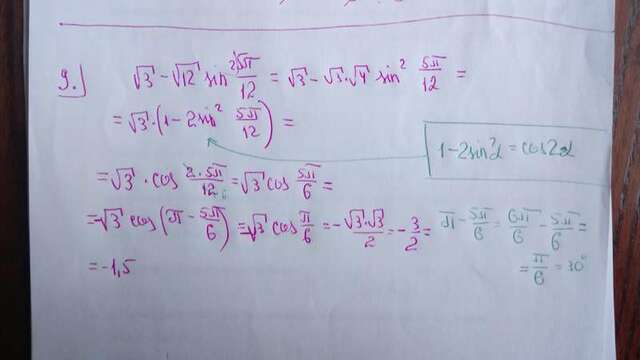 9.) √3 - √12 sin² 5π/12 = √3 - √3·√4 sin² 5π/12 =
= √3·(1 - 2 sin² 5π/12) =
1 - 2sin²α = cos2α
= √3 · cos 2·5π/12 = √3 cos 5π/6 =
= -√3 cos(π - 5π/6) = -√3 cos π/6 = - √3·√3/2 = - 3/2 =
π - 5π/6 = 6π/6 - 5π/6 =
= π/6 = 30°
= -1,5